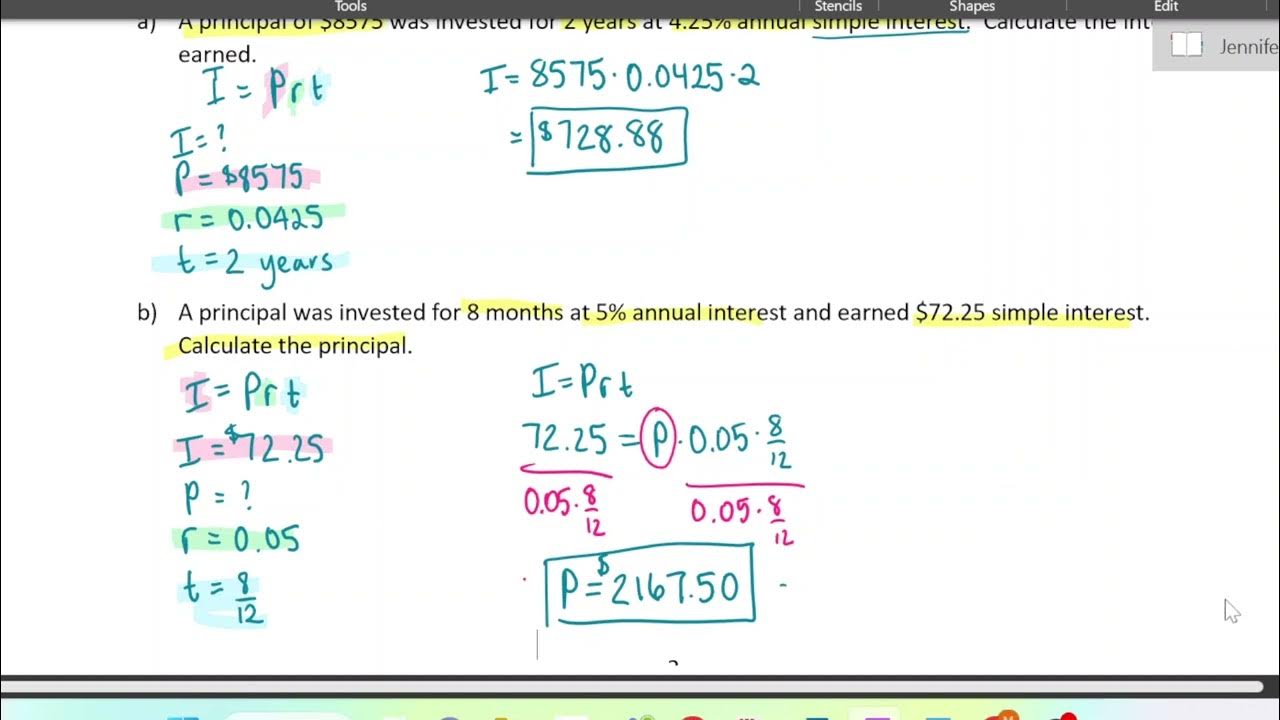 Tools Stencils Shapes Edit
a) A principal of $8575 was invested for 2 years at 4.25% annual simple interest. Calculate the int
Jennife
earned.
I = Prt
I = 8575 · 0.0425 · 2
I = ?
= $728.88
P = $8575
r = 0.0425
t = 2 years
b) A principal was invested for 8 months at 5% annual interest and earned $72.25 simple interest.
Calculate the principal.
I = Prt
I = Prt
I = $72.25
72.25 = P · 0.05 · 8/12
0.05 · 8/12
0.05 · 8/12
P = ?
r = 0.05
t = 8/12
P = $2167.50